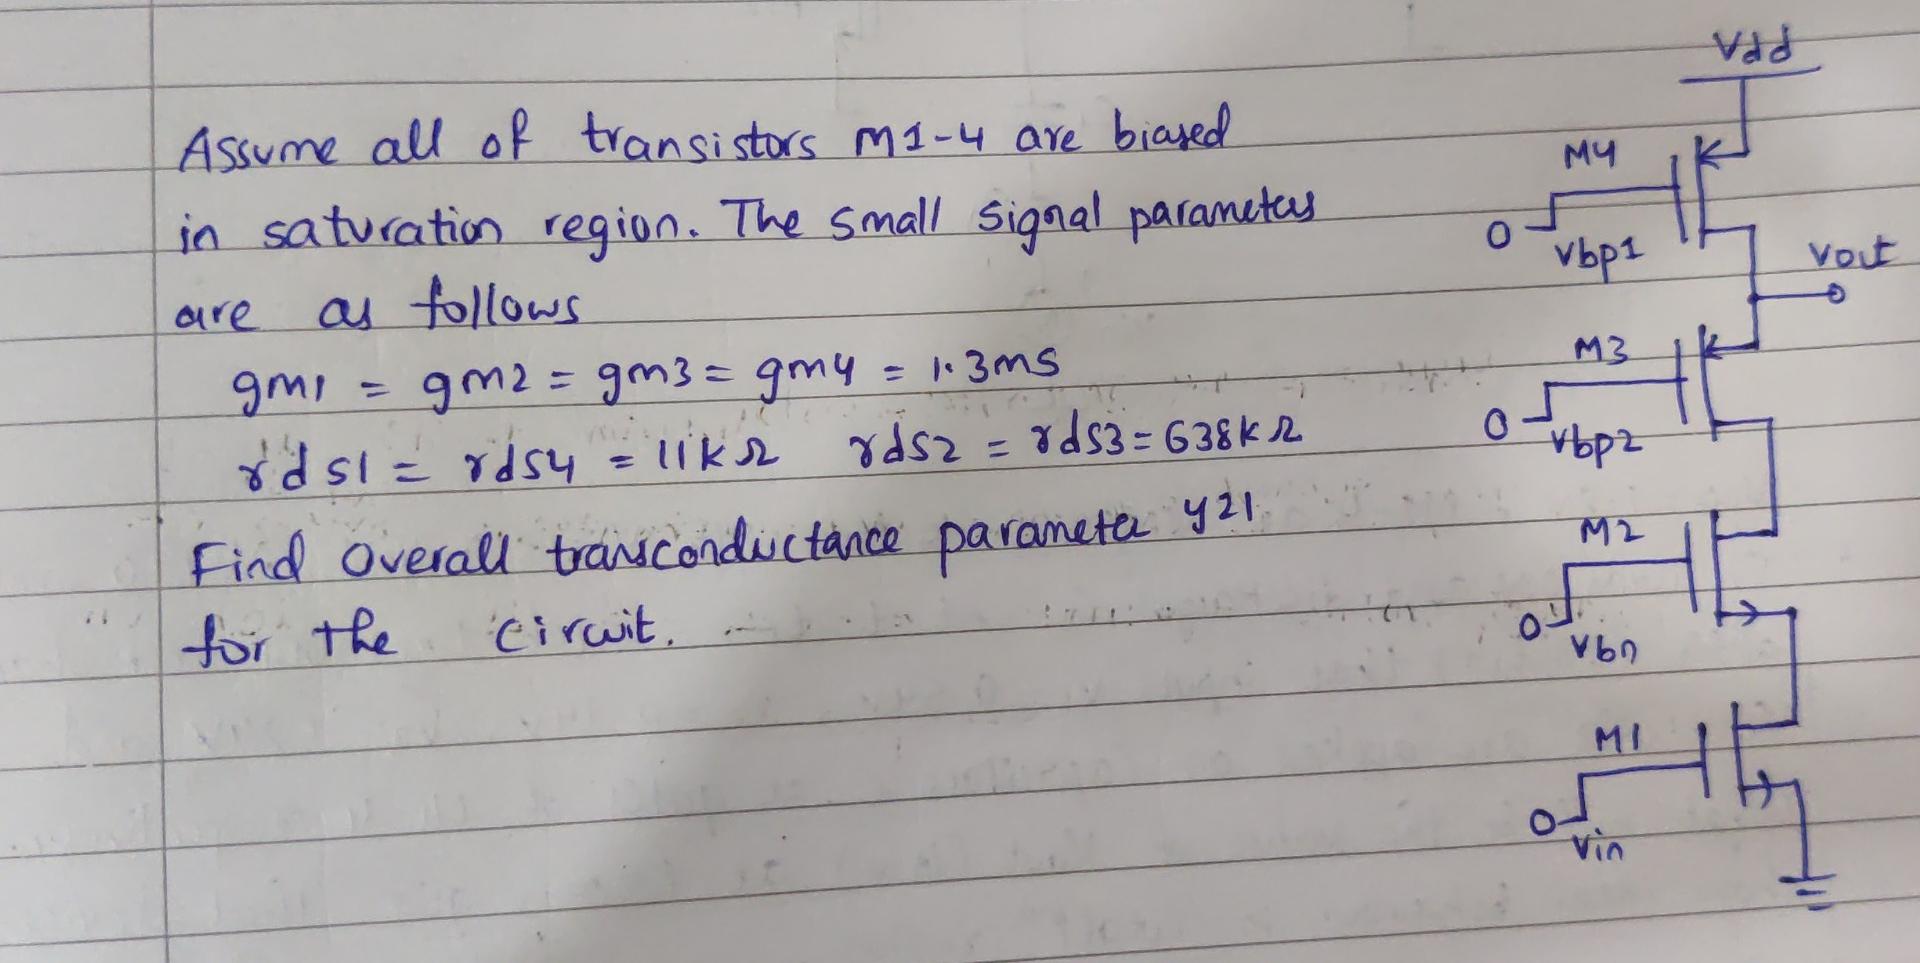 Assume all of transistors M1-4 are biased
in saturation region. The small signal parameters
are as follows
gm1 = gm2 = gm3 = gm4 = 1.3ms
rds1 = rds4 = 11kΩ rds2 = rds3 = 638kΩ
Find overall transconductance parameter y21
for the circuit.
Vdd
M4
Vbp1
Vout
M3
Vbp2
M2
Vbn
M1
Vin